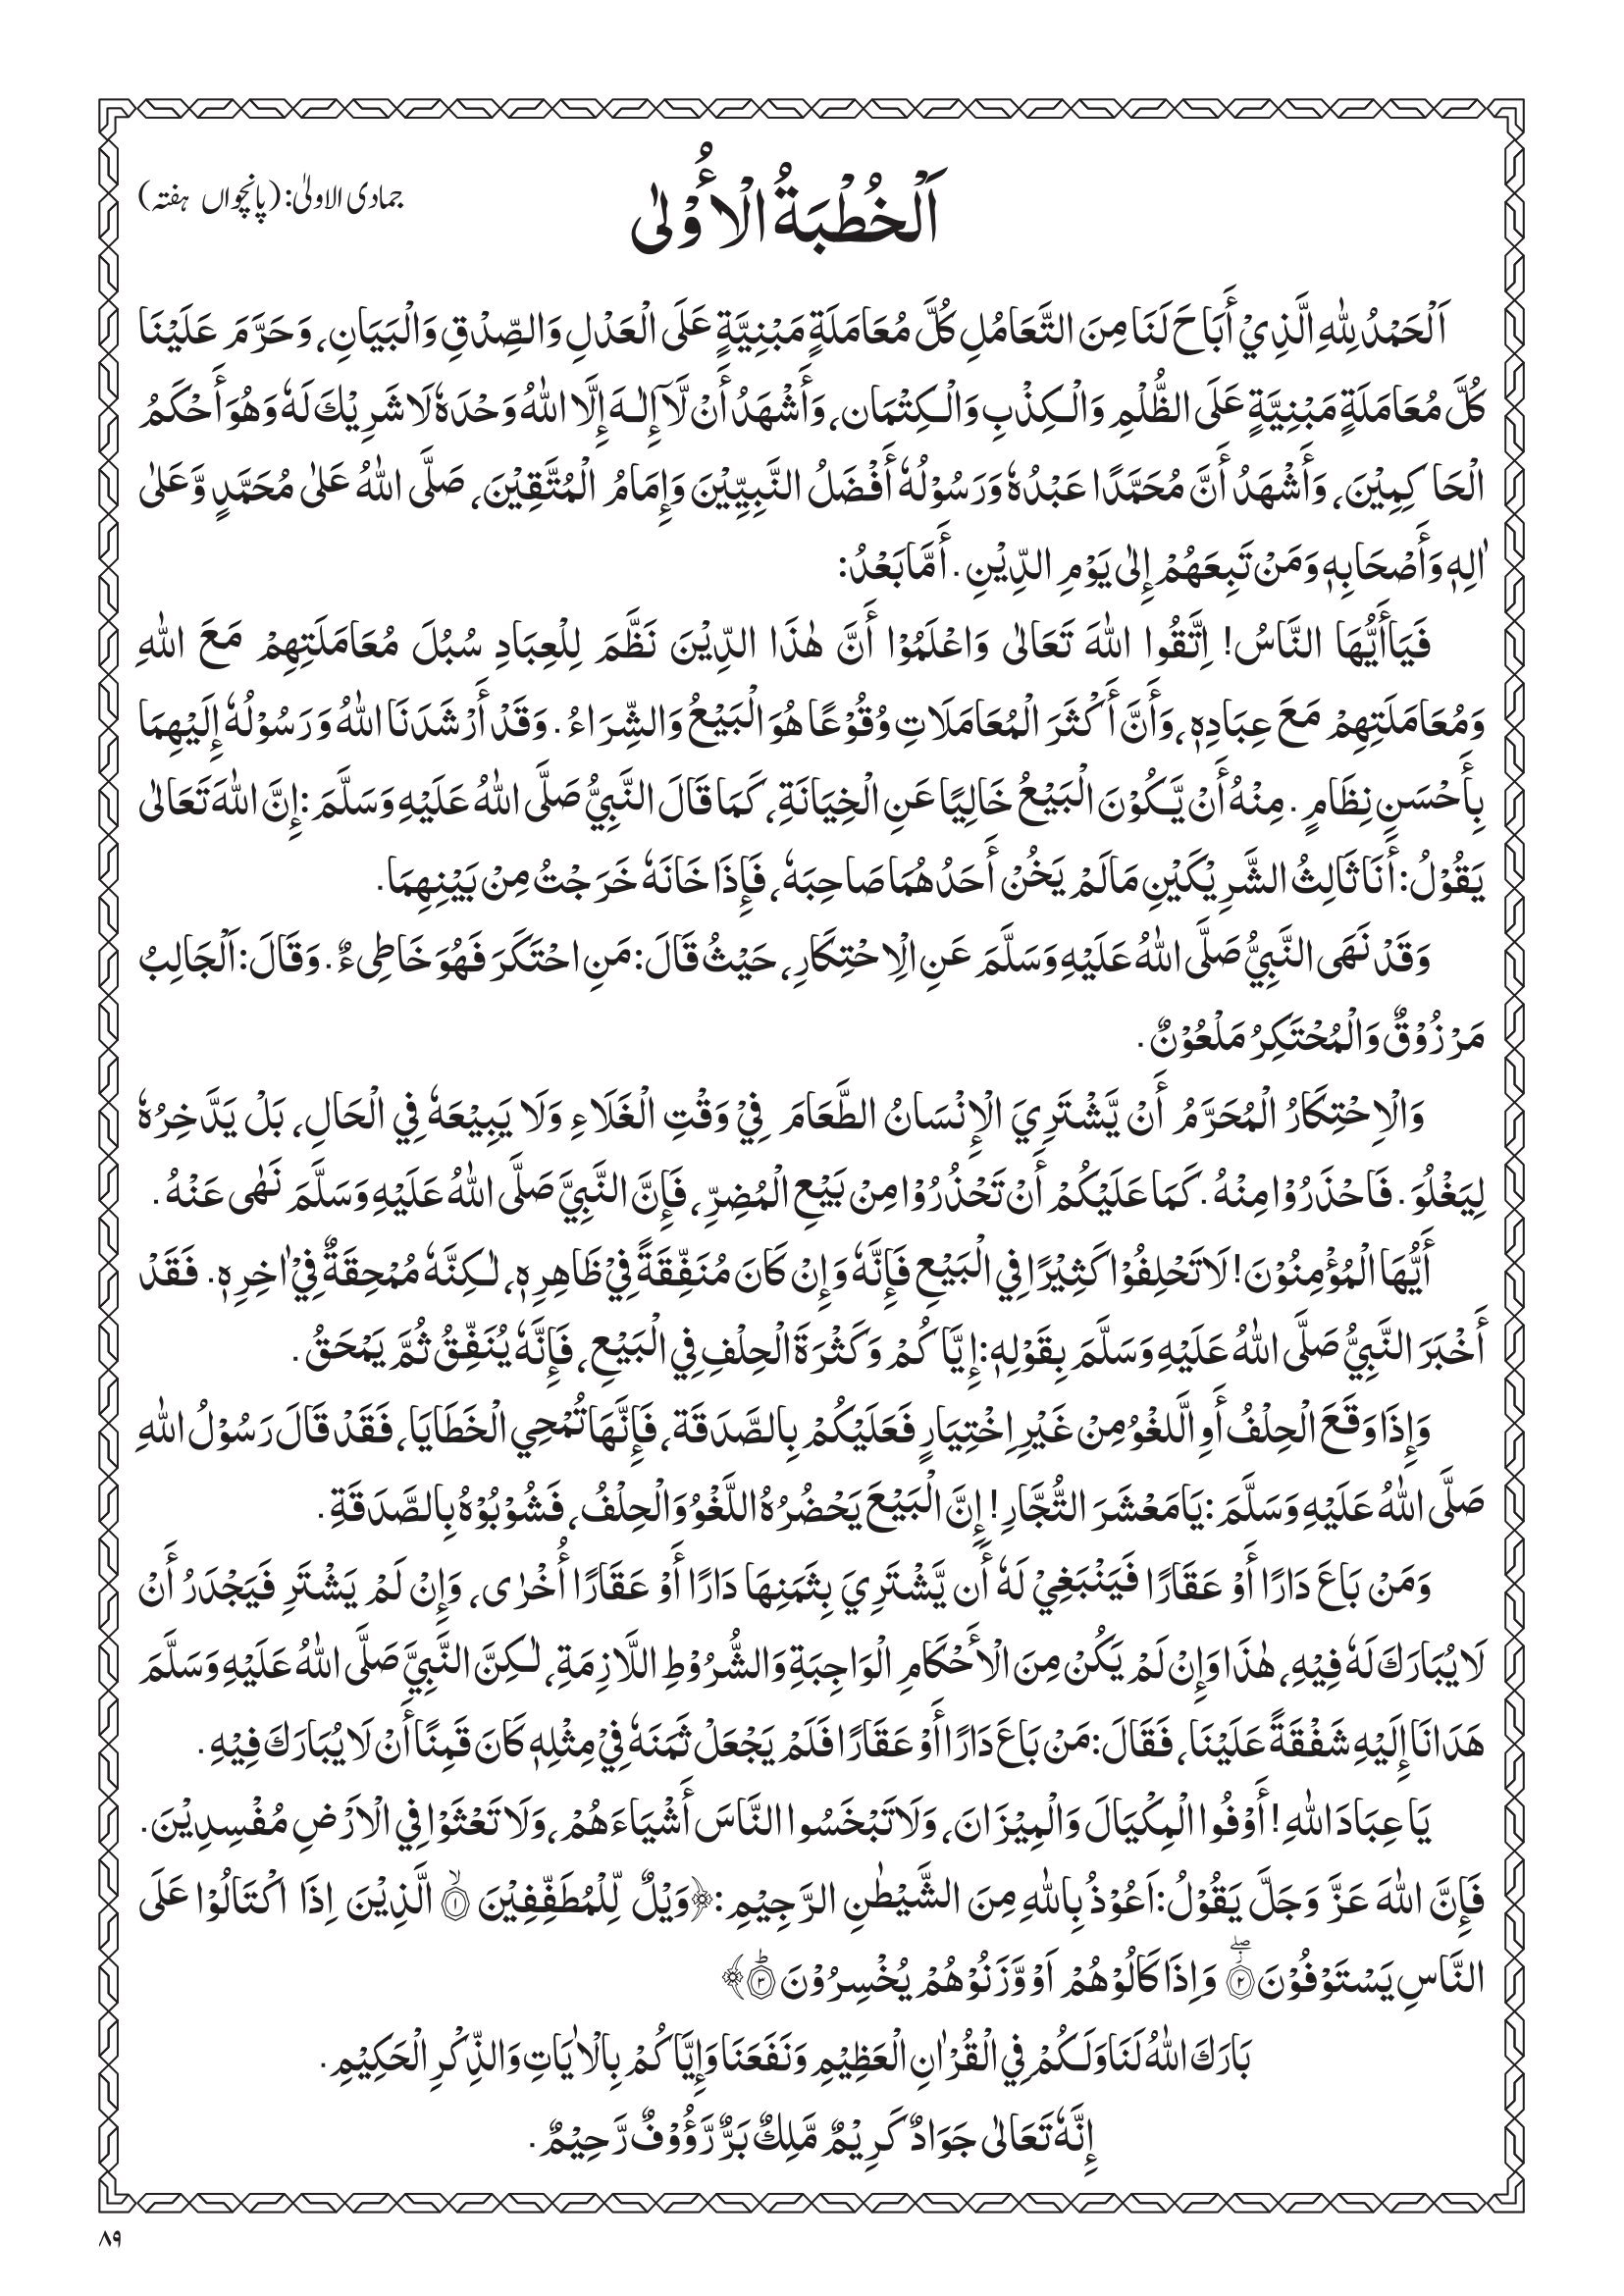 اَلْخُطْبَةُ الْأُوْلٰى
جمادی الاولیٰ: (پانچواں ہفتہ)
اَلْحَمْدُ لِلّٰهِ الَّذِيْ أَبَاحَ لَنَا مِنَ التَّعَامُلِ كُلَّ مُعَامَلَةٍ مَبْنِيَّةٍ عَلَى الْعَدْلِ وَالصِّدْقِ وَالْبَيَانِ، وَحَرَّمَ عَلَيْنَا
كُلَّ مُعَامَلَةٍ مَبْنِيَّةٍ عَلَى الظُّلْمِ وَالْكِذْبِ وَالْكِتْمَان، وَأَشْهَدُ أَنْ لَّآ إِلٰهَ إِلَّا اللّٰهُ وَحْدَهٗ لَا شَرِيْكَ لَهٗ وَهُوَ أَحْكَمُ
الْحَاكِمِيْنَ، وَأَشْهَدُ أَنَّ مُحَمَّدًا عَبْدُهٗ وَرَسُوْلُهٗ أَفْضَلُ النَّبِيِّيْنَ وَإِمَامُ الْمُتَّقِيْنَ، صَلَّى اللّٰهُ عَلٰى مُحَمَّدٍ وَّعَلٰى
اٰلِهٖ وَأَصْحَابِهٖ وَمَنْ تَبِعَهُمْ إِلٰى يَوْمِ الدِّيْنِ. أَمَّا بَعْدُ:
فَيَا أَيُّهَا النَّاسُ! اِتَّقُوا اللّٰهَ تَعَالٰى وَاعْلَمُوْا أَنَّ هٰذَا الدِّيْنَ نَظَّمَ لِلْعِبَادِ سُبُلَ مُعَامَلَتِهِمْ مَعَ اللّٰهِ
وَمُعَامَلَتِهِمْ مَعَ عِبَادِهٖ، وَأَنَّ أَكْثَرَ الْمُعَامَلَاتِ وُقُوْعًا هُوَ الْبَيْعُ وَالشِّرَاءُ. وَقَدْ أَرْشَدَنَا اللّٰهُ وَرَسُوْلُهٗ إِلَيْهِمَا
بِأَحْسَنِ نِظَامٍ. مِنْهُ أَنْ يَّكُوْنَ الْبَيْعُ خَالِيًا عَنِ الْخِيَانَةِ، كَمَا قَالَ النَّبِيُّ صَلَّى اللّٰهُ عَلَيْهِ وَسَلَّمَ: إِنَّ اللّٰهَ تَعَالٰى
يَقُوْلُ: أَنَا ثَالِثُ الشَّرِيْكَيْنِ مَا لَمْ يَخُنْ أَحَدُهُمَا صَاحِبَهٗ، فَإِذَا خَانَهٗ خَرَجْتُ مِنْ بَيْنِهِمَا.
وَقَدْ نَهَى النَّبِيُّ صَلَّى اللّٰهُ عَلَيْهِ وَسَلَّمَ عَنِ الْاِحْتِكَارِ، حَيْثُ قَالَ: مَنِ احْتَكَرَ فَهُوَ خَاطِىءٌ. وَقَالَ: اَلْجَالِبُ
مَرْزُوْقٌ وَالْمُحْتَكِرُ مَلْعُوْنٌ.
وَالْاِحْتِكَارُ الْمُحَرَّمُ أَنْ يَّشْتَرِيَ الْإِنْسَانُ الطَّعَامَ فِيْ وَقْتِ الْغَلَاءِ وَلَا يَبِيْعَهٗ فِي الْحَالِ، بَلْ يَدَّخِرُهٗ
لِيَغْلُوَ. فَاحْذَرُوْا مِنْهُ. كَمَا عَلَيْكُمْ أَنْ تَحْذُرُوْا مِنْ بَيْعِ الْمُضِرِّ، فَإِنَّ النَّبِيَّ صَلَّى اللّٰهُ عَلَيْهِ وَسَلَّمَ نَهٰى عَنْهُ.
أَيُّهَا الْمُؤْمِنُوْنَ! لَا تَحْلِفُوْا كَثِيْرًا فِي الْبَيْعِ فَإِنَّهٗ وَإِنْ كَانَ مُنَفِّقَةً فِيْ ظَاهِرِهٖ، لٰكِنَّهٗ مُمْحِقَةٌ فِيْ اٰخِرِهٖ. فَقَدْ
أَخْبَرَ النَّبِيُّ صَلَّى اللّٰهُ عَلَيْهِ وَسَلَّمَ بِقَوْلِهٖ: إِيَّاكُمْ وَكَثْرَةَ الْحِلْفِ فِي الْبَيْعِ، فَإِنَّهٗ يُنَفِّقُ ثُمَّ يَمْحَقُ.
وَإِذَا وَقَعَ الْحِلْفُ أَوِ الَّلغْوُ مِنْ غَيْرِ اِخْتِيَارٍ فَعَلَيْكُمْ بِالصَّدَقَة، فَإِنَّهَا تُمْحِي الْخَطَايَا، فَقَدْ قَالَ رَسُوْلُ اللّٰهِ
صَلَّى اللّٰهُ عَلَيْهِ وَسَلَّمَ: يَا مَعْشَرَ التُّجَّارِ! إِنَّ الْبَيْعَ يَحْضُرُهُ اللَّغْوُ وَالْحِلْفُ، فَشُوْبُوْهُ بِالصَّدَقَةِ.
وَمَنْ بَاعَ دَارًا أَوْ عَقَارًا فَيَنْبَغِيْ لَهٗ أَن يَّشْتَرِيَ بِثَمَنِهَا دَارًا أَوْ عَقَارًا أُخْرٰى، وَإِنْ لَمْ يَشْتَرِ فَيَجْدَرُ أَنْ
لَا يُبَارَكَ لَهٗ فِيْهِ، هٰذَا وَإِنْ لَمْ يَكُنْ مِنَ الْأَحْكَامِ الْوَاجِبَةِ وَالشُّرُوْطِ اللَّازِمَةِ، لٰكِنَّ النَّبِيَّ صَلَّى اللّٰهُ عَلَيْهِ وَسَلَّمَ
هَدَانَا إِلَيْهِ شَفْقَةً عَلَيْنَا، فَقَالَ: مَنْ بَاعَ دَارًا أَوْ عَقَارًا فَلَمْ يَجْعَلْ ثَمَنَهٗ فِيْ مِثْلِهٖ كَانَ قَمِنًا أَنْ لَا يُبَارَكَ فِيْهِ.
يَا عِبَادَ اللّٰهِ! أَوْفُوا الْمِكْيَالَ وَالْمِيْزَانَ، وَلَا تَبْخَسُوا النَّاسَ أَشْيَاءَهُمْ، وَلَا تَعْثَوْا فِي الْاَرْضِ مُفْسِدِيْنَ.
فَإِنَّ اللّٰهَ عَزَّ وَجَلَّ يَقُوْلُ: اَعُوْذُ بِاللّٰهِ مِنَ الشَّيْطٰنِ الرَّجِيْمِ: ﴿وَيْلٌ لِّلْمُطَفِّفِيْنَ ۙ﴿۱﴾ الَّذِيْنَ اِذَا اكْتَالُوْا عَلَى
النَّاسِ يَسْتَوْفُوْنَ ۖ﴿۲﴾ وَاِذَا كَالُوْهُمْ اَوْ وَّزَنُوْهُمْ يُخْسِرُوْنَ ؕ﴿۳﴾﴾
بَارَكَ اللّٰهُ لَنَا وَلَكُمْ فِي الْقُرْاٰنِ الْعَظِيْمِ وَنَفَعَنَا وَإِيَّاكُمْ بِالْاٰيَاتِ وَالذِّكْرِ الْحَكِيْمِ.
إِنَّهٗ تَعَالٰى جَوَادٌ كَرِيْمٌ مَّلِكٌ بَرٌّ رَّؤُوْفٌ رَّحِيْمٌ.
۸۹